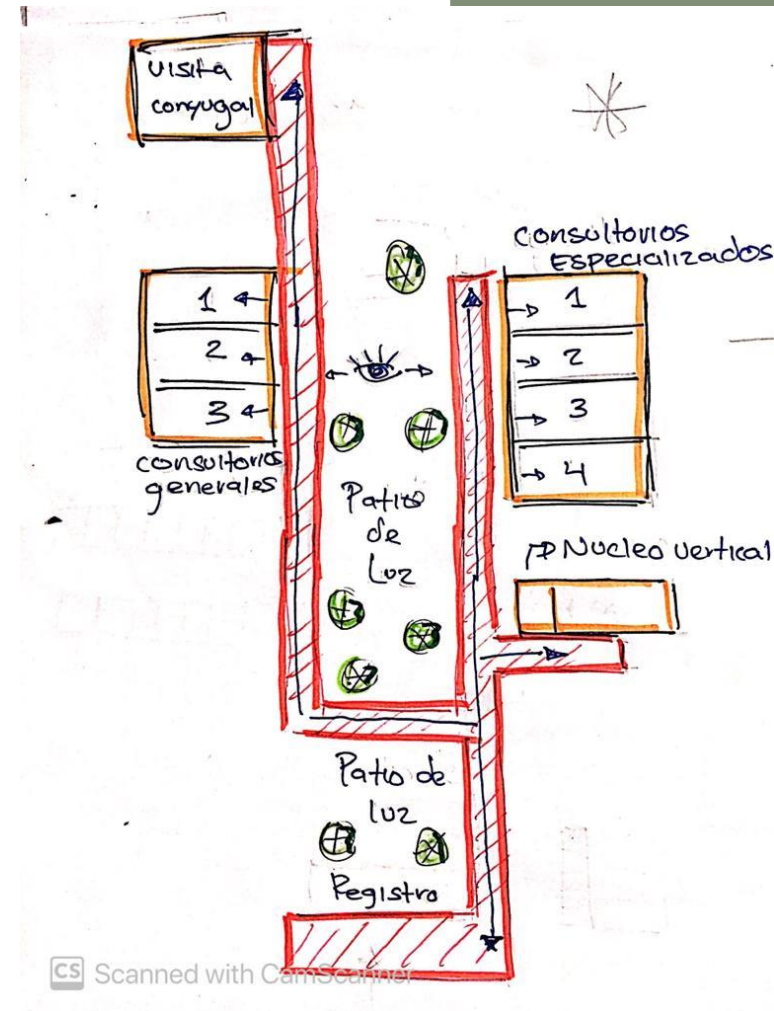 visita
conyugal
consultorios
Especializados
1
2
3
consultorios
generales
1
2
3
4
Patio
de
Luz
Nucleo vertical
Patio de
luz
Registro
CS Scanned with CamScanner